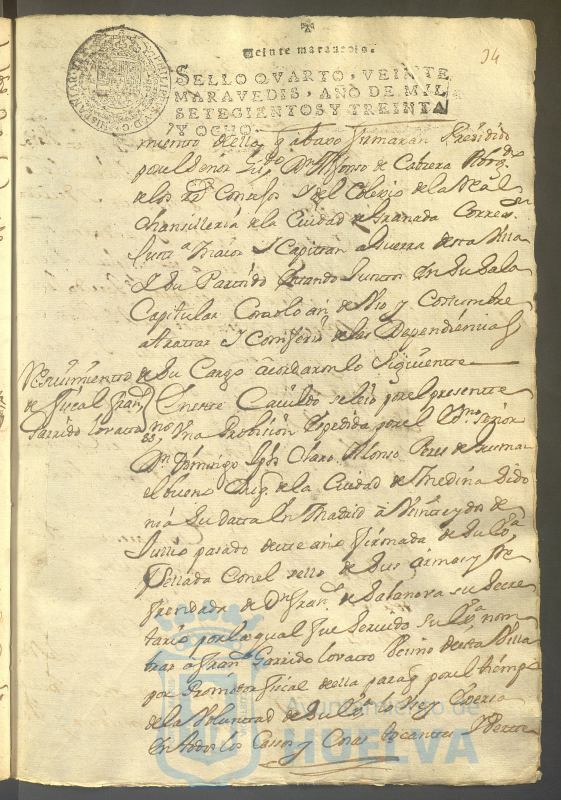 34
Veinte maravedis.
SELLO QVARTO, VEINTE
MARAVEDIS, AÑO DE MIL
SETECIENTOS Y TREINTA
Y OCHO.
miento de ella q abaxo firmaran Presidido
por el Señor Lizdo Dn Alfonso de Cabrera Abogdo
de los Rs Consejos y del Colegio de la Real
Chansilleria de la Ciudad de Granada Corregdor
Justa maior y Capitan a Guerra de esta Villa
y su Partido estando Juntos en su Sala
Capitular Como lo an de Vso y Costumbre
a tratar y Conferir de las Dependencias
de su Cargo acordaron lo siguiente
Reciuimiento
de fiscal Franco
Garrido Lovatto
En este Cauildo se leio por el presente
no Vna Probision expedida por el Exmo señor
Dn Domingo Claro Alonso Peres de Guzman
el bueno Duq de la Ciudad de Medina Sido
nia Su datta en Madrid a Veinte y dos de
Jullio pasado de este año firmada de Su Exa
Sellada Con el sello de sus Armas y Re
frendada de Dn Franco de Salanova su Secre
tario por la qual fue Servido su Exa nom
trar a Franco Garrido Lovatto Vecino de esta Villa
por Promotor fiscal de ella para q por el tiempo
de la Voluntad de Su Exa lo Use y Exersa
en todos los Casos y Cosas
Ayuntamiento de
HUELVA